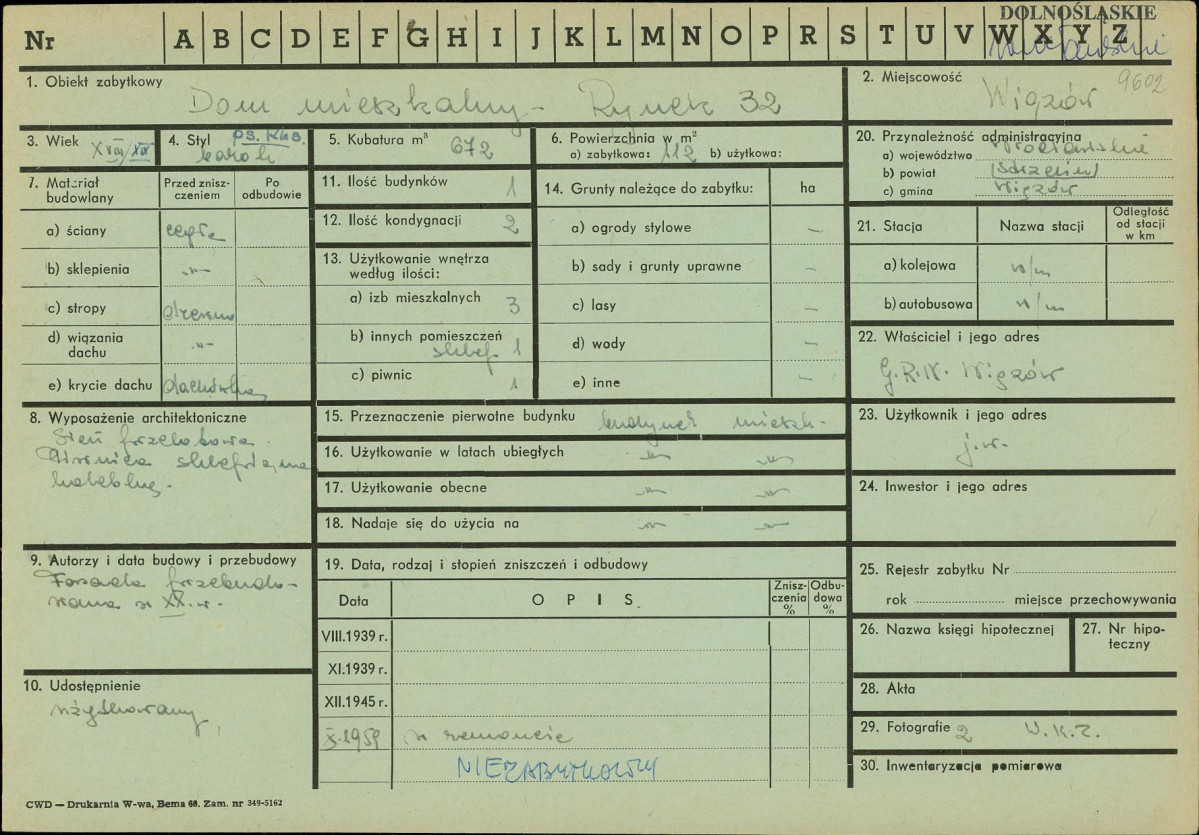 DOLNOŚLĄSKIE
Nr A B C D E F G H I J K L M N O P R S T U V W X Y Z
1. Obiekt zabytkowy
Dom mieszkalny - Rynek 32
2. Miejscowość
Wiązów 9602
3. Wiek XVIII/XIX
4. Styl ps. klas.
barok
5. Kubatura m³ 672
6. Powierzchnia w m²
a) zabytkowa: 112 b) użytkowa:
20. Przynależność administracyjna
a) województwo Wrocławskie
b) powiat Strzelin
c) gmina Wiązów
7. Materiał budowlany
Przed zniszczeniem
Po odbudowie
a) ściany cegła
b) sklepienia -"-
c) stropy drewno
d) wiązania dachu -"-
e) krycie dachu dachówka
11. Ilość budynków 1
12. Ilość kondygnacji 2
13. Użytkowanie wnętrza
według ilości:
a) izb mieszkalnych 3
b) innych pomieszczeń
sklep. 1
c) piwnic 1
14. Grunty należące do zabytku: ha
a) ogrody stylowe —
b) sady i grunty uprawne —
c) lasy —
d) wody —
e) inne —
21. Stacja
Nazwa stacji
Odległość od stacji w km
a) kolejowa w/m
b) autobusowa w/m
22. Właściciel i jego adres
G.R.N. Wiązów
8. Wyposażenie architektoniczne
Sień przelotowa.
Piwnica sklepiona
kolebką.
15. Przeznaczenie pierwotne budynku budynek mieszk.
16. Użytkowanie w latach ubiegłych -"- -"-
17. Użytkowanie obecne -"- -"-
18. Nadaje się do użycia na -"- -"-
23. Użytkownik i jego adres
j.w.
24. Inwestor i jego adres
9. Autorzy i data budowy i przebudowy
Fasada przebudo-
wana w XX.w.
19. Data, rodzaj i stopień zniszczeń i odbudowy
Data
O P I S.
Zniszczenia %
Odbudowa %
VIII.1939 r.
XI.1939 r.
XII.1945 r.
X.1959 w remoncie
NIEZABYTKOWY
10. Udostępnienie
użytkowany
25. Rejestr zabytku Nr
rok miejsce przechowywania
26. Nazwa księgi hipotecznej
27. Nr hipoteczny
28. Akta
29. Fotografie 2 W.K.Z.
30. Inwentaryzacja pomiarowa
CWD — Drukarnia W-wa, Bema 60. Zam. nr 349-5162